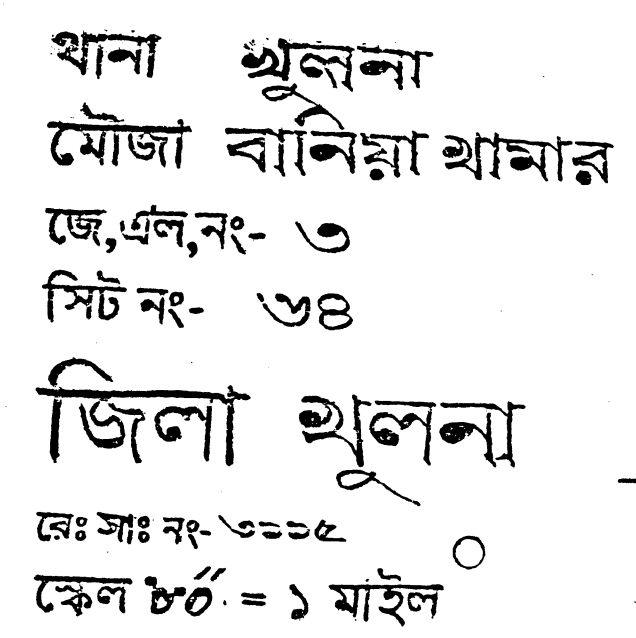 থানা খুলনা
মৌজা বানিয়া খামার
জে,এল,নং- ৩
সিট নং- ৩৪
জিলা খুলনা
রে: সা: নং-
স্কেল ৮০″ = ১ মাইল